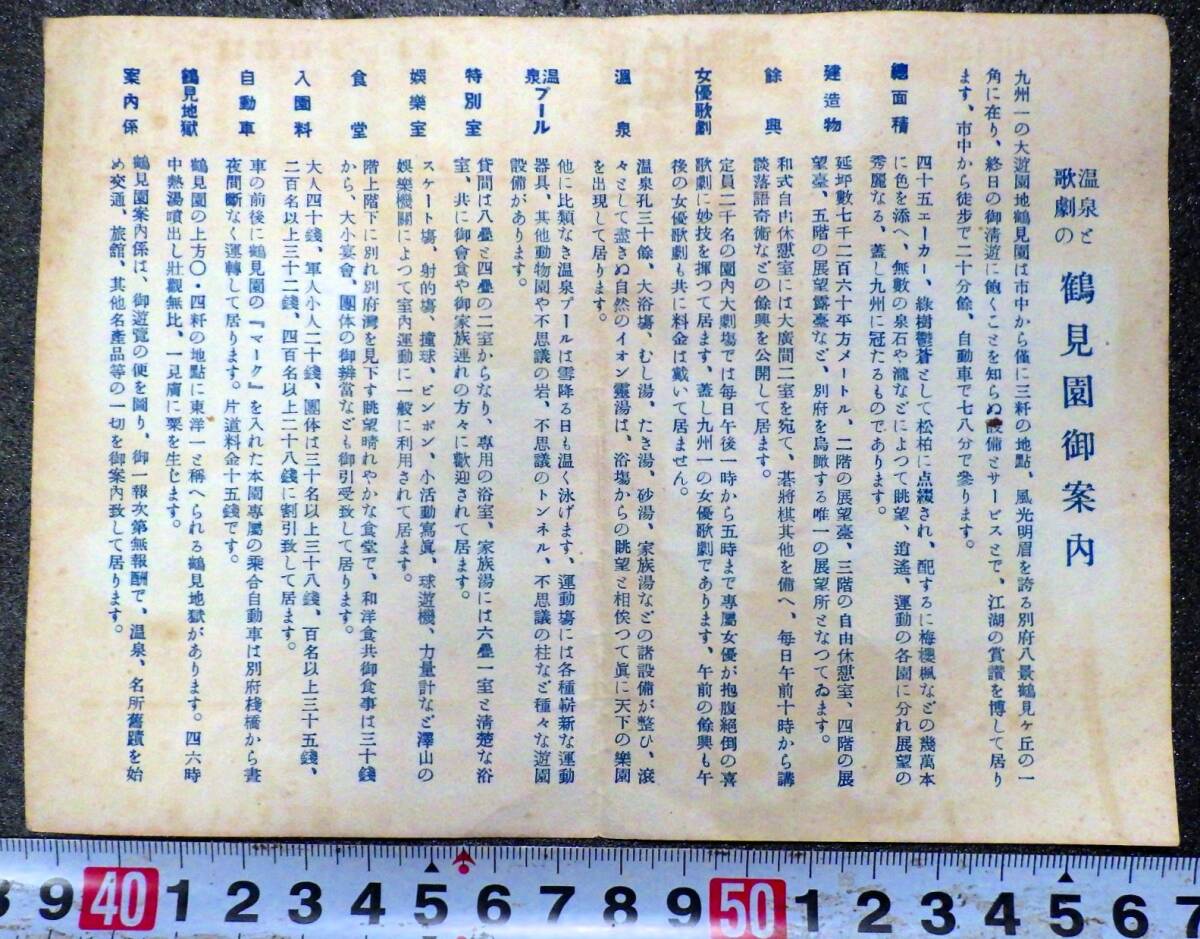 温泉と
歌劇の
鶴見園御案内
九州一の大遊園地鶴見園は市中から僅に三粁の地點、風光明眉を誇る別府八景鶴見ヶ丘の一
角に在り、終日の御清遊に飽くことを知らぬ設備とサービスとで、江湖の賞讃を博して居り
ます、市中から徒步で二十分餘、自動車で七八分で參ります。
總面積
四十五エーカー、綠樹鬱蒼として松柏に点綴され、配するに梅櫻楓などの幾萬本
に色を添へ、無數の泉石や瀧などによつて眺望、逍遙、運動の各園に分れ展望の
秀麗なる、蓋し九州に冠たるものであります。
建造物
延坪數七千二百六十平方メートル、二階の展望臺、三階の自由休憇室、四階の展
望臺、五階の展望露臺など、別府を鳥瞰する唯一の展望所となつてゐます。
餘興
和式自由休憇室には大廣間二室を宛て、碁將棋其他を備へ、每日午前十時から講
談落語奇術などの餘興を公開して居ます。
女優歌劇
定員二千名の園內大劇場では每日午後一時から五時まで專屬女優が抱腹絕倒の喜
歌劇に妙技を揮つて居ます、蓋し九州一の女優歌劇であります、午前の餘興も午
後の女優歌劇も共に料金は戴いて居ません。
溫泉
温泉孔三十餘、大浴塲、むし湯、たき湯、砂湯、家族湯などの諸設備が整ひ、滾
々として盡きぬ自然のイオン靈湯は、浴塲からの眺望と相俟つて眞に天下の樂園
を出現して居ります。
温泉プール
他に比類なき温泉プールは雪降る日も温く泳げます、運動塲には各種嶄新な運動
器具、其他動物園や不思議の岩、不思議のトンネル、不思議の柱など種々な遊園
設備があります。
特別室
貸間は八疊と四疊の二室からなり、專用の浴室、家族湯には六疊一室と清楚な浴
室、共に御會食や御家族連れの方々に歡迎されて居ます。
娛樂室
スケート塲、射的塲、撞球、ピンポン、小活動寫眞、球遊機、力量計など澤山の
娛樂機關によつて室內運動に一般に利用されて居ます。
食堂
階上階下に別れ別府灣を見下す眺望晴れやかな食堂で、和洋食共御食事は三十錢
から、大小宴會、團体の御辨當なども御引受致して居ります。
入園料
大人四十錢、軍人小人二十錢、團体は三十名以上三十八錢、百名以上三十五錢、
二百名以上三十二錢、四百名以上二十八錢に割引致して居ます。
自動車
車の前後に鶴見園の『マーク』を入れた本園專屬の乘合自動車は別府棧橋から晝
夜間斷なく運轉して居ります。片道料金十五錢です。
鶴見地獄
鶴見園の上方〇・四粁の地點に東洋一と稱へられる鶴見地獄があります。四六時
中熱湯噴出し壯觀無比、一見膚に粟を生じます。
案內係
鶴見園案內係は、御遊覽の便を圖り、御一報次第無報酬で、溫泉、名所舊蹟を始
め交通、旅館、其他名產品等の一切を御案內致して居ります。
3 9 40 1 2 3 4 5 6 7 8 9 50 1 2 3 4 5 6 7